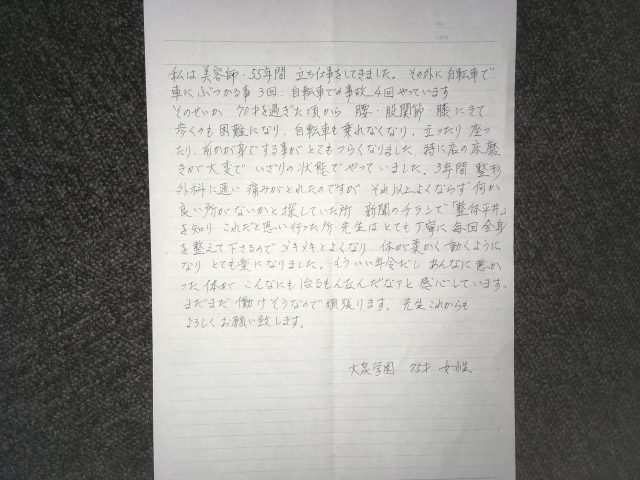 私は美容師・55年間 立ち仕事をしてきました。その外に自転車で
車にぶつかる事3回、自転車での事故4回やっています
そのせいか 70才を過ぎた頃から 腰・股関節・膝にきて
歩くのも困難になり、自転車も乗れなくなり、立ったり座っ
たり、前かがみでする事がとてもつらくなりました。特に店の床磨
きが大変で いざりの状態でやっていました。3年間 整形
外科に通い 痛みがとれたのですが それ以上よくならず 何か
良い所がないかと探していた所 新聞のチラシで「整体平井」
を知り これだと思い行った所 先生はとても丁寧に毎回全身
を整えて下さるので メキメキとよくなり 体が柔かく動くように
なり とても楽になりました。もういい年令だし あんなに悪か
った体が こんなにも治るもんなんだなァと 感心しています。
まだまだ 働けそうなので頑張ります。先生これからも
よろしくお願い致します。
大泉学園 75才 女性